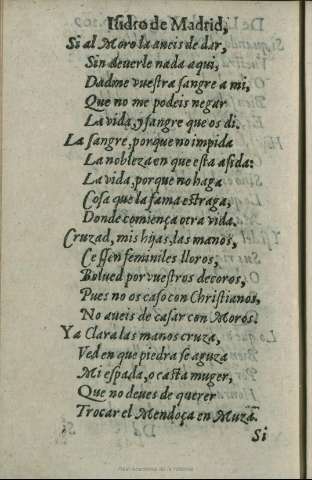 Isidro de Madrid,
Si al Moro la aueis de dar,
Sin deuerle nada aqui,
Dadme vuestra sangre a mi,
Que no me podeis negar
La vida, y sangre que os di.
La sangre, porque no impida
La nobleza en que esta asida:
La vida, porque no haga
Cosa que la fama estraga,
Donde comiença otra vida.
Cruzad, mis hijas, las manos,
Cessen feminiles lloros,
Bolued por vuestros decoros,
Pues no os caso con Christianos,
No aueis de casar con Moros.
Ya Clara las manos cruza,
Ved en que piedra se aguza
Mi espada, o casta muger,
Que no deues de querer
Trocar el Mendoça en Muza.
Si
Real Academia de la Historia